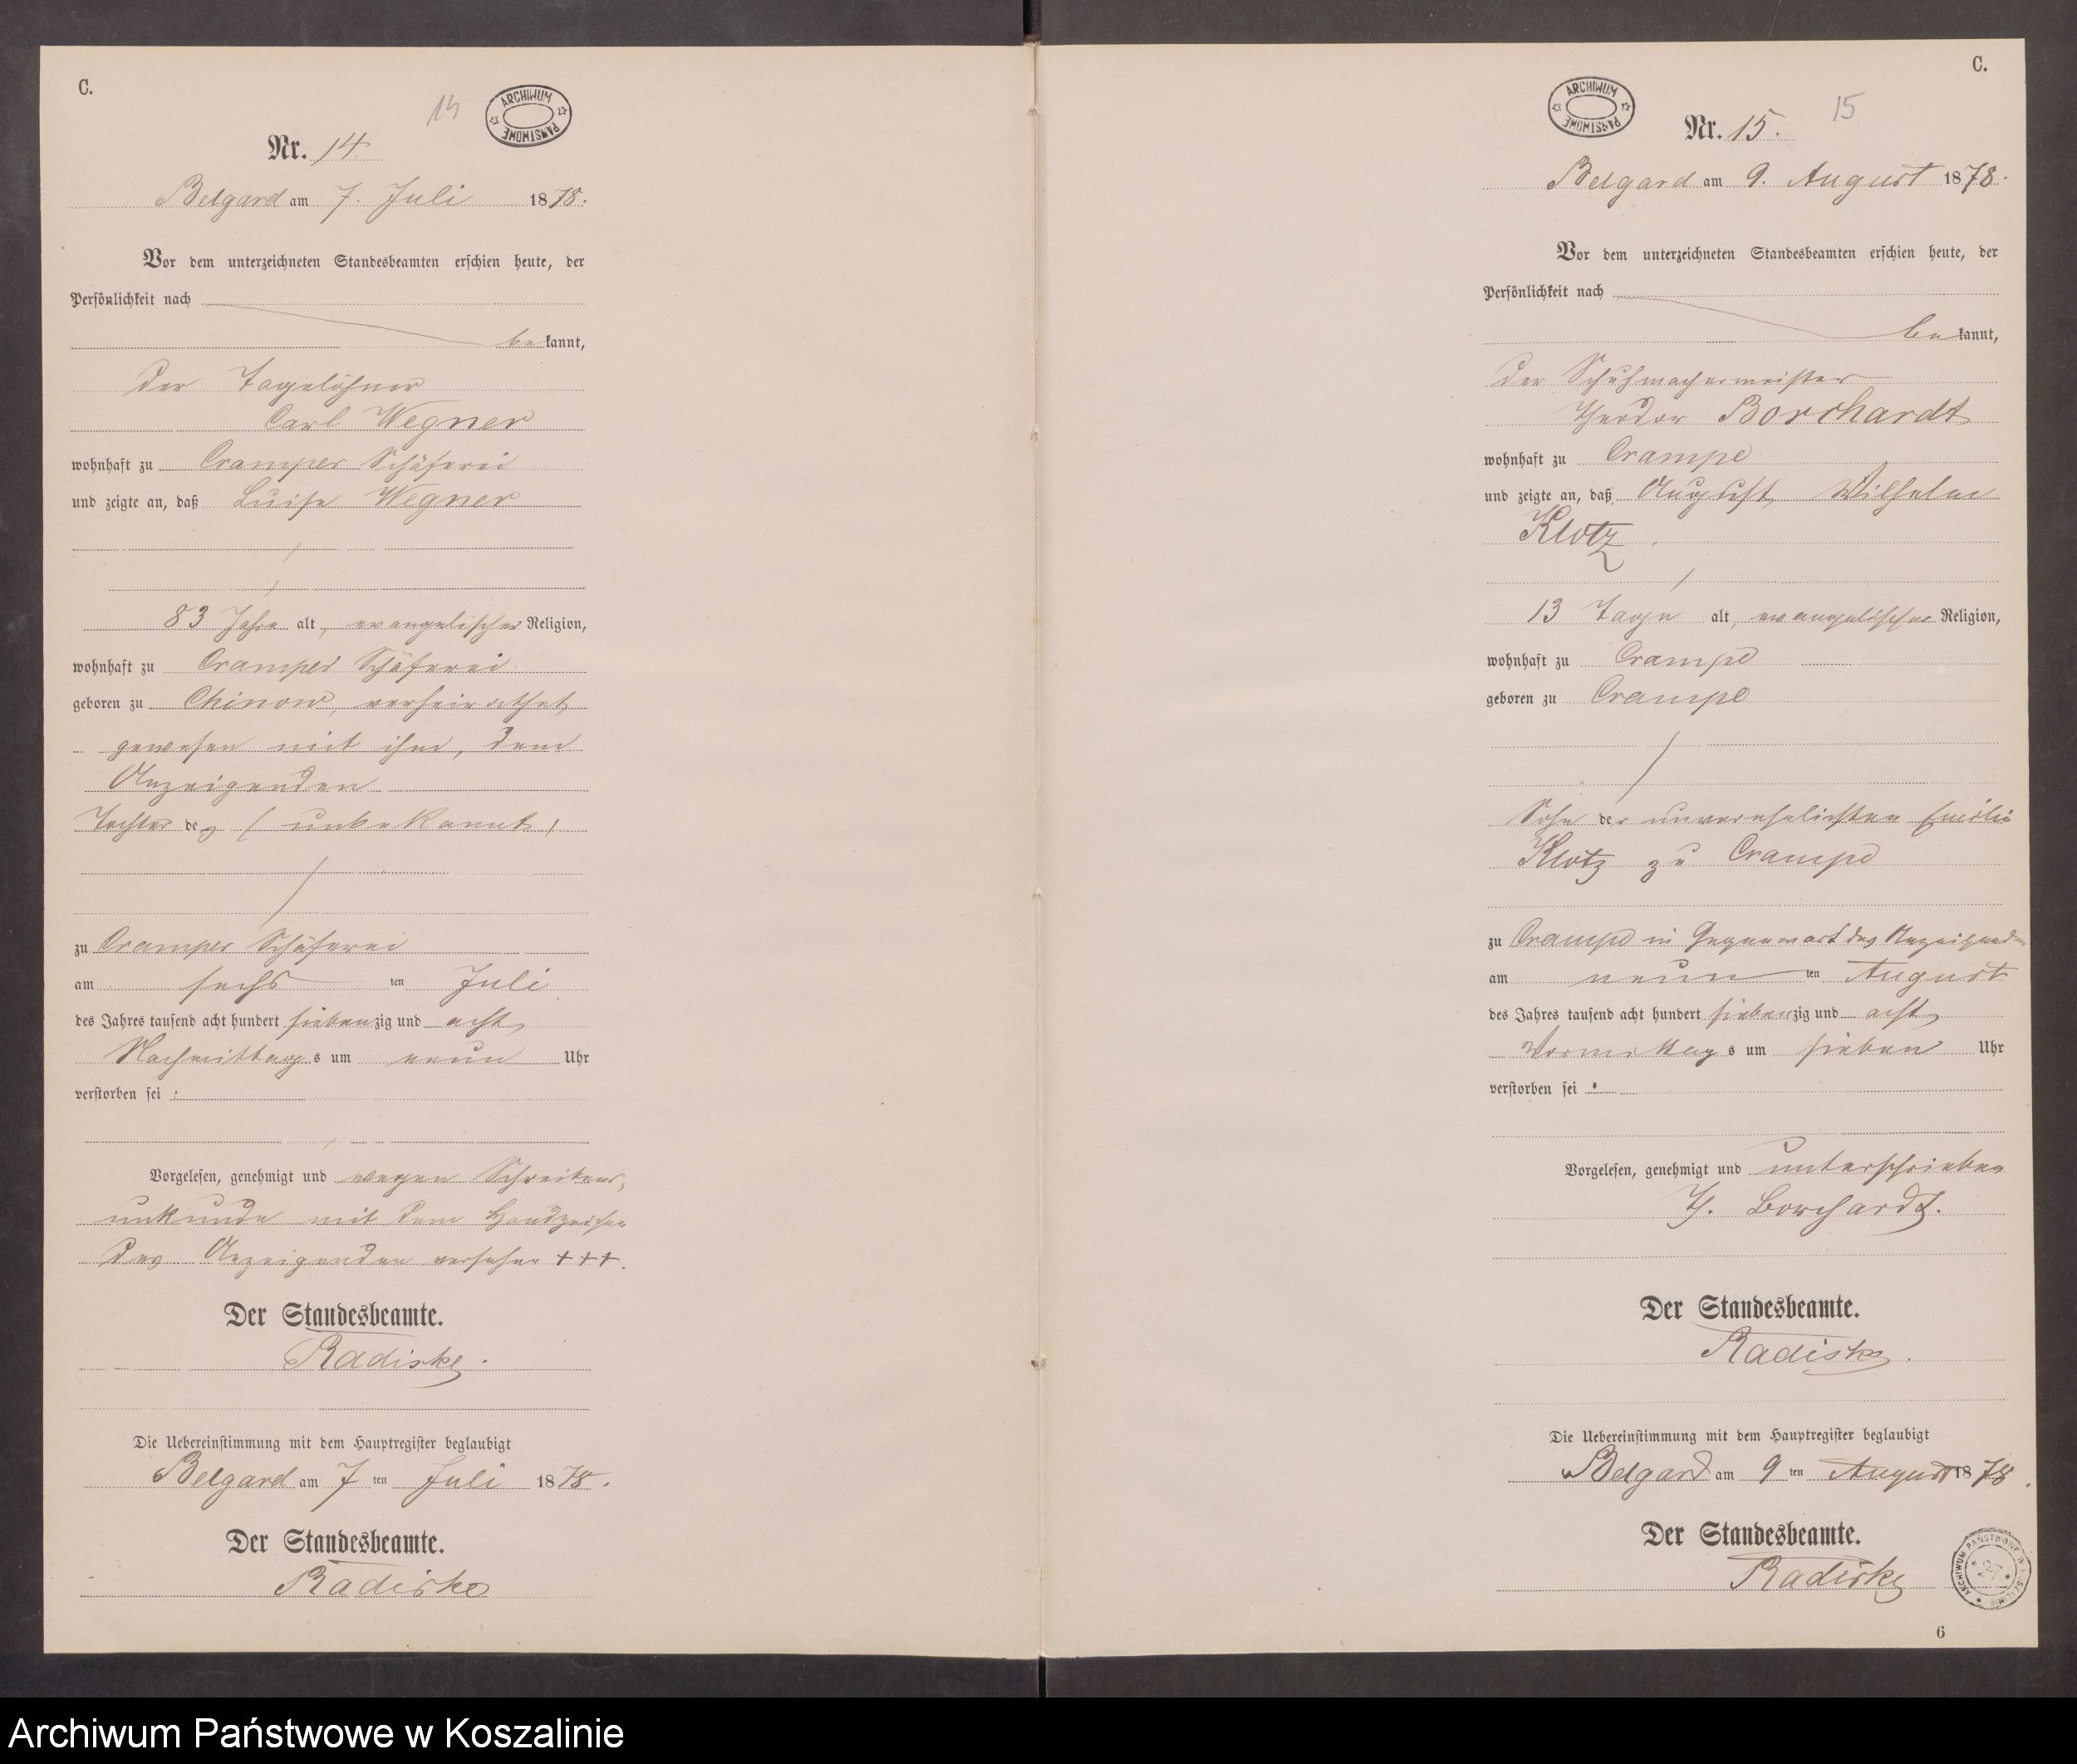 C.
14
ARCHIWUM PAŃSTWOWE
Nr. 14.
Belgard am 7. Juli 1878.
Vor dem unterzeichneten Standesbeamten erschien heute, der
Persönlichkeit nach
bekannt,
der Tagelöhner
Carl Wegner
wohnhaft zu Cramper Schäferei
und zeigte an, daß Luise Wegner
83 Jahre alt, evangelischer Religion,
wohnhaft zu Cramper Schäferei
geboren zu Chinow, verheirathet
gewesen mit ihm, dem
Anzeigenden
Tochter des (unbekannt)
zu Cramper Schäferei
am sechsten Juli
des Jahres tausend acht hundert siebenzig und acht
Nachmittags um neun Uhr
verstorben sei:
Vorgelesen, genehmigt und wegen Schreibens-
unkunde mit dem Handzeichen
des Anzeigenden versehen +++.
Der Standesbeamte.
Radiske.
Die Uebereinstimmung mit dem Hauptregister beglaubigt
Belgard am 7ten Juli 1878.
Der Standesbeamte.
Radiske
C.
15
ARCHIWUM PAŃSTWOWE
Nr. 15.
Belgard am 9. August 1878.
Vor dem unterzeichneten Standesbeamten erschien heute, der
Persönlichkeit nach
bekannt,
der Schuhmachermeister
Theodor Borchardt
wohnhaft zu Crampe
und zeigte an, daß August Wilhelm
Klotz.
13 Tage alt, evangelischer Religion,
wohnhaft zu Crampe
geboren zu Crampe
Sohn der unverehelichten Emilie
Klotz zu Crampe
zu Crampe in Gegenwart des Anzeigenden
am neunten August
des Jahres tausend acht hundert siebenzig und acht
Vormittags um sieben Uhr
verstorben sei:
Vorgelesen, genehmigt und unterschrieben
Th. Borchardt.
Der Standesbeamte.
Radiske.
Die Uebereinstimmung mit dem Hauptregister beglaubigt
Belgard am 9ten August 1878.
Der Standesbeamte.
Radiske
ARCHIWUM PAŃSTWOWE W KOSZALINIE
6
Archiwum Państwowe w Koszalinie